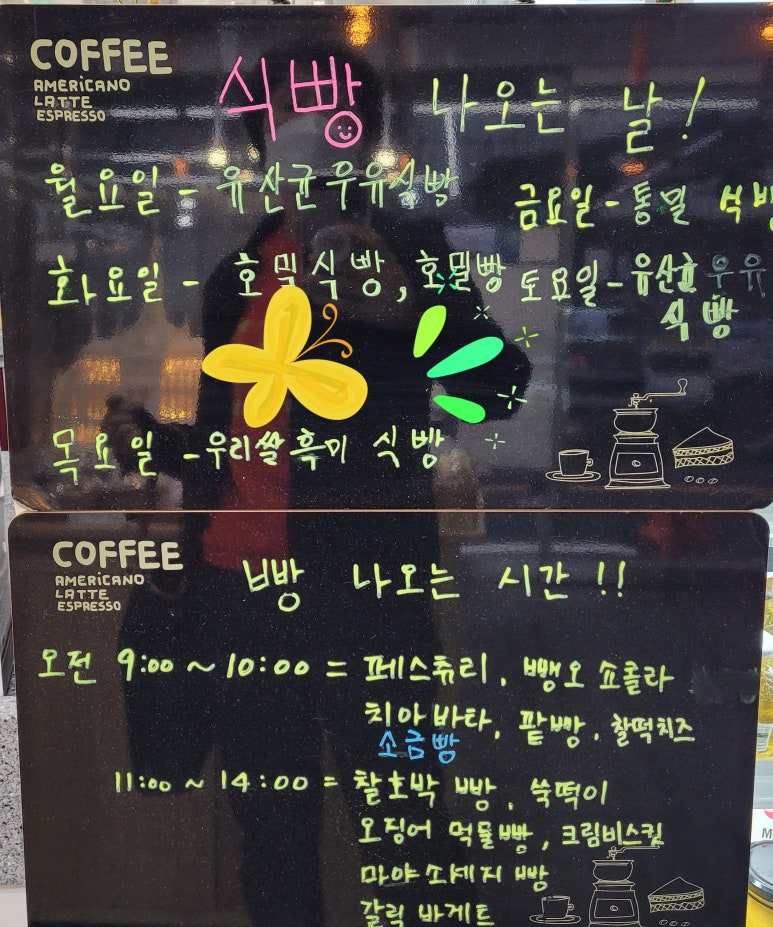 COFFEE
AMERICANO
LATTE
ESPRESSO
식빵 나오는 날!
월요일 - 유산균우유식빵
화요일 - 호밀식빵, 호밀빵
목요일 - 우리쌀흑미 식빵
금요일 - 통밀 식빵
토요일 - 유산균 우유
식빵
COFFEE
AMERICANO
LATTE
ESPRESSO
빵 나오는 시간!!
오전 9:00 ~ 10:00 = 페스츄리, 뺑오 쇼콜라
치아바타, 팥빵, 찰떡치즈
소금빵
11:00 ~ 14:00 = 찰호박 빵, 쑥떡이
오징어 먹물빵, 크림비스킷
마야 소세지 빵
갈릭 바게트